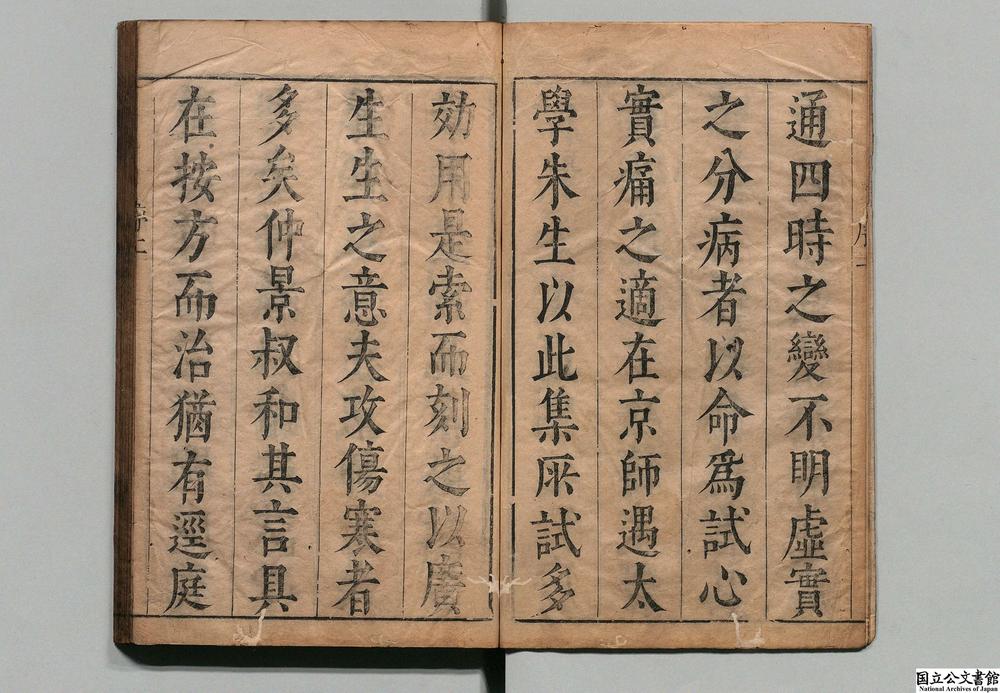 通四時之變不明虛實
之分病者以命爲試心
實痛之適在京師遇太
學朱生以此集所試多
効用是索而刻之以廣
生生之意夫攻傷寒者
多矣仲景叔和其言具
在按方而治猶有逕庭
国立公文書館
National Archives of Japan